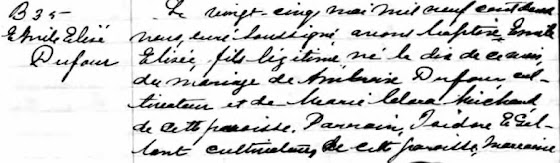 B 35
Emile Elisé
Dufour
Le vingt cinq mai mil neuf cent
nous, curé soussigné avons baptisé Emile
Elisée, fils légitime né le dix de ce mois,
du mariage de Ambroise Dufour cul-
tivateur et de Marie Clara Michaud
de cette paroisse. Parrain, Isidore
cultivateur de cette paroisse, marraine